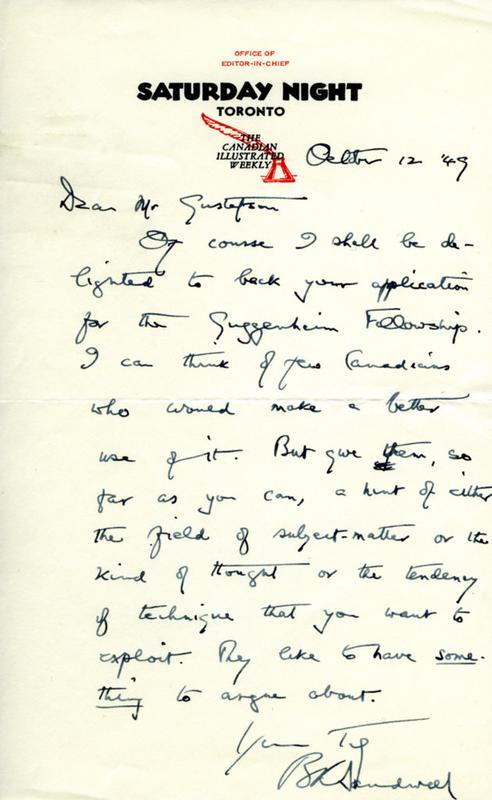 OFFICE OF
EDITOR-IN-CHIEF
SATURDAY NIGHT
TORONTO
THE
CANADIAN
ILLUSTRATED
WEEKLY
October 12 '49
Dear Mr Gustafson
Of course I shall be de-
lighted to back your application
for the Guggenheim Fellowship.
I can think of few Canadians
who would make a better
use of it. But give them, so
far as you can, a hint of either
the field of subject-matter or the
kind of thought or the tendency
of technique that you want to
exploit. They like to have some-
thing to argue about.
Yours
B K Sandwell